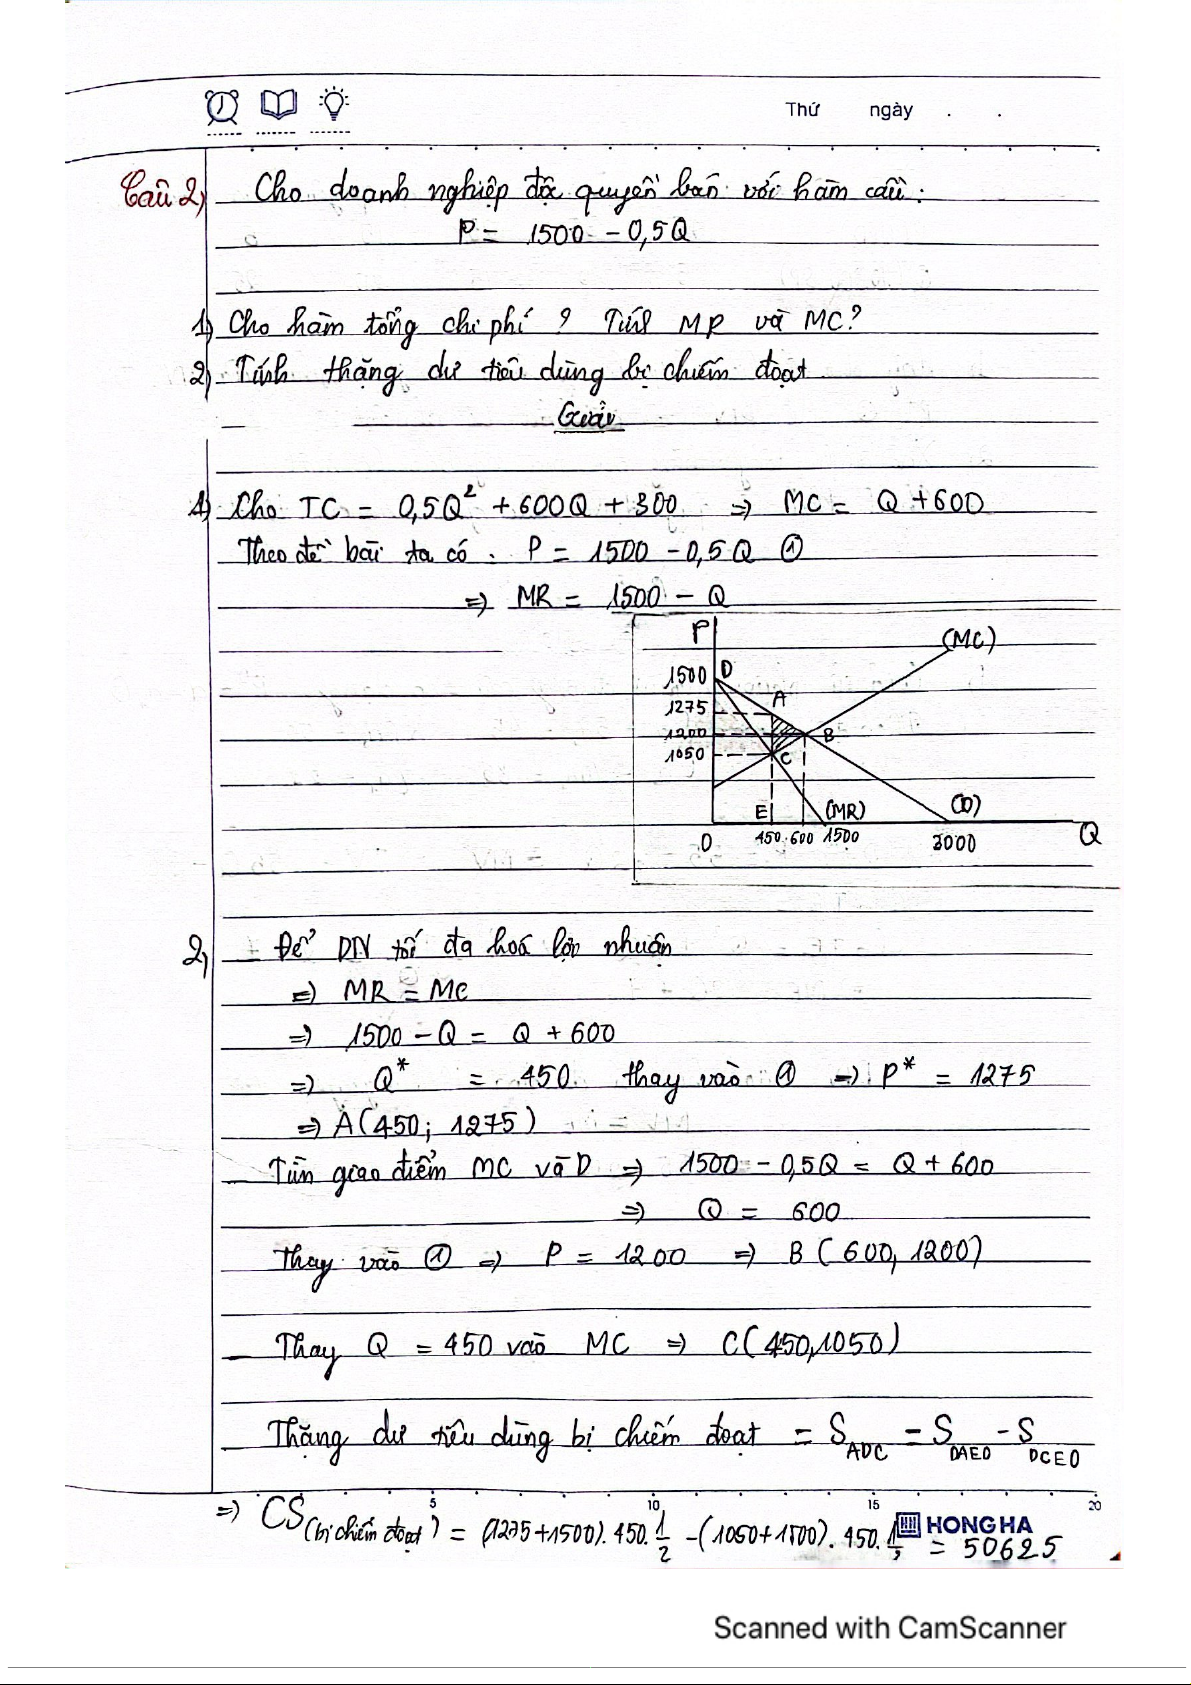 Thứ ngày . .
Câu 2) Cho doanh nghiệp độc quyền bán với hàm cầu:
P = 1500 - 0,5Q
1) Cho hàm tổng chi phí ? Tính MR và MC?
2) Tính thặng dư tiêu dùng bị chiếm đoạt
Giải
1) Cho TC = 0,5Q² + 600Q + 300 => MC = Q + 600
Theo đề bài ta có : P = 1500 - 0,5Q ①
=> MR = 1500 - Q
P (MC)
1500 D
1275 A
1200 B
1050 C
E (MR) (D)
0 450 600 1500 3000 Q
2) - Để DN tối đa hoá lợi nhuận
=> MR = MC
=> 1500 - Q = Q + 600
=> Q* = 450 thay vào ① => P* = 1275
=> A(450; 1275)
- Tìm giao điểm MC và D => 1500 - 0,5Q = Q + 600
=> Q = 600
Thay vào ① => P = 1200 => B (600, 1200)
- Thay Q = 450 vào MC => C(450,1050)
- Thặng dư tiêu dùng bị chiếm đoạt = S ADC = S DAEO - S DCEO
5 10 15 20
=> CS (bị chiếm đoạt) = (1275+1500). 450. 1/2 - (1050+1500). 450. 1/2 = 50625
HONG HA
Scanned with CamScanner